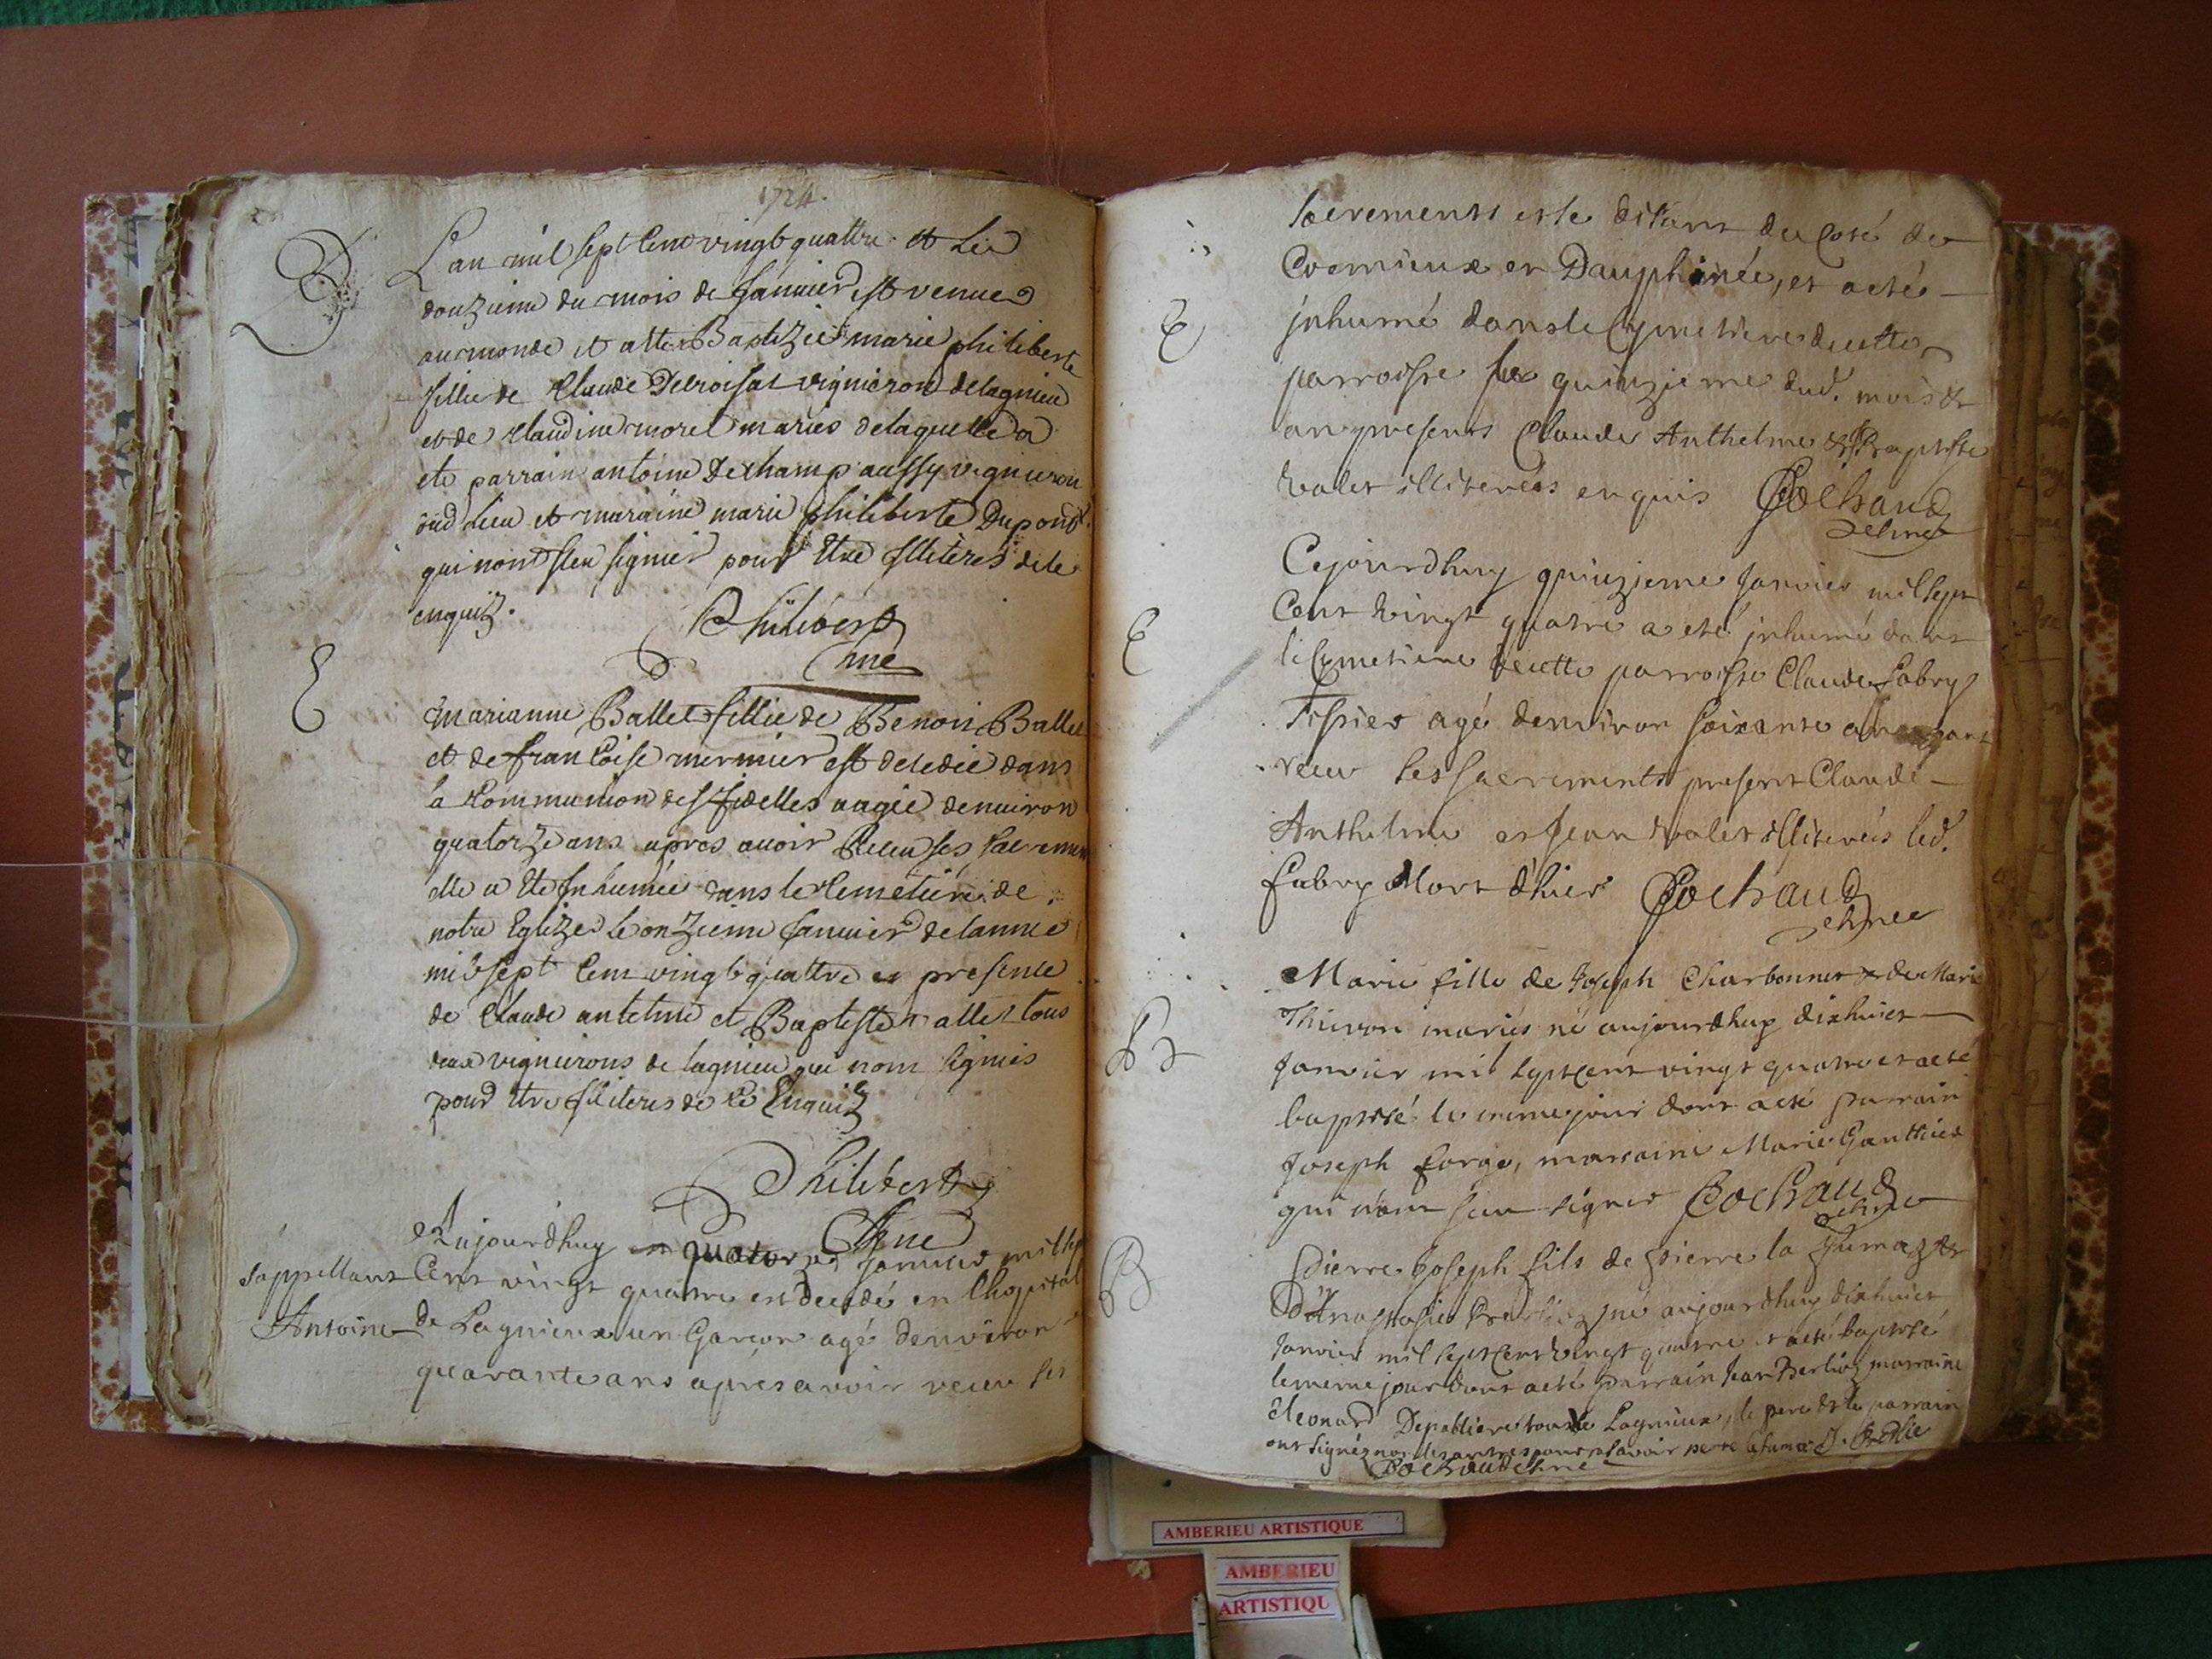 1724.
B
L'an mil sept Cent vingt quattre et Le
douzieme du mois de Janvier est venue
au monde et atte Baptizée marie philiberte
fillie de Claude Delroisat vigneron de lagnieu
et de Claudine morel maries delaquelle a
ete parrain antoine Dechamp aussy vigneron
dud lieu et maraine marie philiberte Dupont
qui nont sceu signier pour Etre Illiteres de ce
enquiz.
Philibert
E
marianne Ballet fillie de Benois Ballet
et de francoise mermier est decedée dans
la Communion des fidelles aagée denuiron
quatorze ans apres auoir Receu ses
elle a ete Inhumée dans le Cemetiere de
notre Eglize le onzieme Janvier de lannee
mil sept Cent vingt quattre en presence
de Claude antelme et Baptiste vallet tous
deux vignerons de lagnieu qui nont signés
pour etre Illiteres de ce Enquiz
Philibert
Aujourdhuy quatorze Janvier mil sept
s'appellant Cent vingt quatre est decedé en lhopital
Antoine de Lagnieux un Garçon agé denviron
quarante ans apres avoir receu les
sacrements este disant du Costé de
Cremieux en Dauphinée, et a eté
E
inhumé dans le Cymetiere de cette
parroisse le quinzieme dud. mois et
an presents Claude Anthelme et J Baptiste
Valet illiterés enquis Cochaud
Cejourdhuy quinzieme Janvier mil sept
Cent vingt quatre a eté inhumé dans
E
le Cymetiere de cette parroisse Claude fabry
Tissier agé denviron soixante ans ayant
receu les sacrements present Claude
Anthelme et Jean Valet illiterés led.
fabry Mort dhier Cochaud
Marie fille de Joseph Charbonnet et de Marie
Thievon mariés né aujourdhuy dixhuict
B
Janvier mil sept cent vingt quatre et a eté
baptisé le meme jour dont a eté parrain
Joseph forge, marraine Marie Gauthier
qui n'ont sceu signer Cochaud
Pierre Joseph fils de Pierre la fumaz et
B
d'Anastasie Berlioz né aujourdhuy dixhuict
Janvier mil sept Cent vingt quatre et a eté baptisé
le meme jour dont a eté parrain Jean Berlioz marraine
Eleonard Depabliere tous de Lagnieux, le pere et le parrain
ont signés non les autres pour ne scavoir
Cochaud
AMBERIEU ARTISTIQUE
AMBERIEU
ARTISTIQU